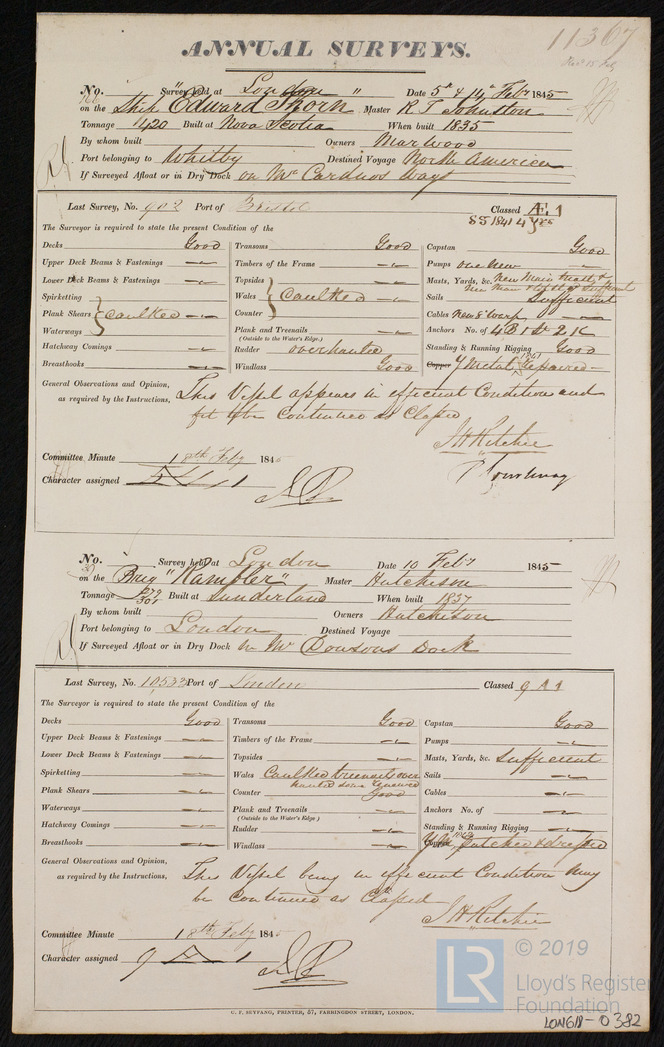 11367
ANNUAL SURVEYS.
No. Survey held at London Date 5th & 14th Feby 1845
on the Ship "Edward Thorn" Master R T Johnston
Tonnage 420 Built at Nova Scotia When built 1835
By whom built Owners Marwood
Port belonging to Whitby Destined Voyage North America
If Surveyed Afloat or in Dry Dock on Mr Carduos ways
Last Survey, No. 902 Port of Bristol Classed Æ 1
SS 1841 4 yrs
The Surveyor is required to state the present Condition of the
Decks Good Transoms Good Capstan Good
Upper Deck Beams & Fastenings Timbers of the Frame Pumps one new
Lower Deck Beams & Fastenings Topsides Masts, Yards, &c. New Main Mast &
Spirketting Wales Caulked Sails Sufficient
Plank Shears Caulked Counter Cables New & warp
Waterways Plank and Treenails Anchors No. of 4 B 1 St 2 K
(Outside to the Water's Edge.)
Hatchway Comings Rudder overhauled Standing & Running Rigging Good
Breasthooks Windlass Good Copper Y Metal 1841 Repaired
General Observations and Opinion, This Vessel appears in efficient Condition and
as required by the Instructions, fit to be Continued as Classed
J H Ritchie
Committee Minute 18th Feby 184
Character assigned Æ 1
No. Survey held at London Date 10 Feby 1845
on the Brig "Rambler" Master Hutchison
Tonnage 279 301 Built at Sunderland When built 1837
By whom built Owners Hutchison
Port belonging to London Destined Voyage
If Surveyed Afloat or in Dry Dock in Mr Cousons Dock
Last Survey, No. 10,533 Port of London Classed 9 A 1
The Surveyor is required to state the present Condition of the
Decks Good Transoms Good Capstan Good
Upper Deck Beams & Fastenings Timbers of the Frame Pumps
Lower Deck Beams & Fastenings Topsides Masts, Yards, &c. Sufficient
Spirketting Wales Caulked treenails over Sails
hauled some renewed
Plank Shears Counter Good Cables
Waterways Plank and Treenails Anchors No. of
(Outside to the Water's Edge.)
Hatchway Comings Rudder Standing & Running Rigging
Breasthooks Windlass Copper Y M, Patched & dressed
General Observations and Opinion, This Vessel being in efficient Condition may
as required by the Instructions, be Continued as Classed
J H Ritchie
Committee Minute 18th Feby 184
Character assigned 9 A 1
© 2019
LR
Lloyd's Register
Foundation
C. F. SEYFANG, PRINTER, 57, FARRINGDON STREET, LONDON.
LON618-0382